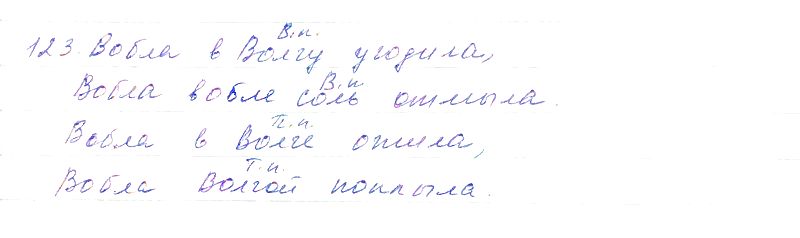 В.п.
123. Вобла в Волгу угодила,
В.п.
Вобла вобле соль отмыла.
П.п.
Вобла в Волге ожила,
Т.п.
Вобла Волгой поплыла.